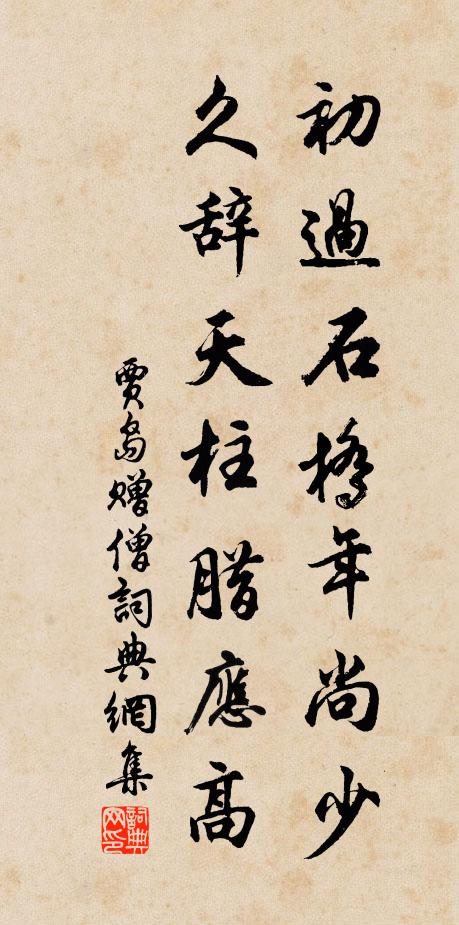 初過石橋年尚少
久辞天柱腊應高
賈島贈僧詞典網集
詞典网印